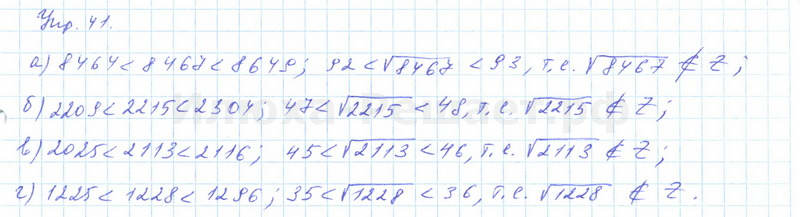 Упр. 41.
а) 8464 < 8467 < 8649; 92 < √8467 < 93, т.е. √8467 ∉ Z;
б) 2209 < 2215 < 2304; 47 < √2215 < 48, т.е. √2215 ∉ Z;
в) 2025 < 2113 < 2116; 45 < √2113 < 46, т.е. √2113 ∉ Z;
г) 1225 < 1228 < 1296; 35 < √1228 < 36, т.е. √1228 ∉ Z.